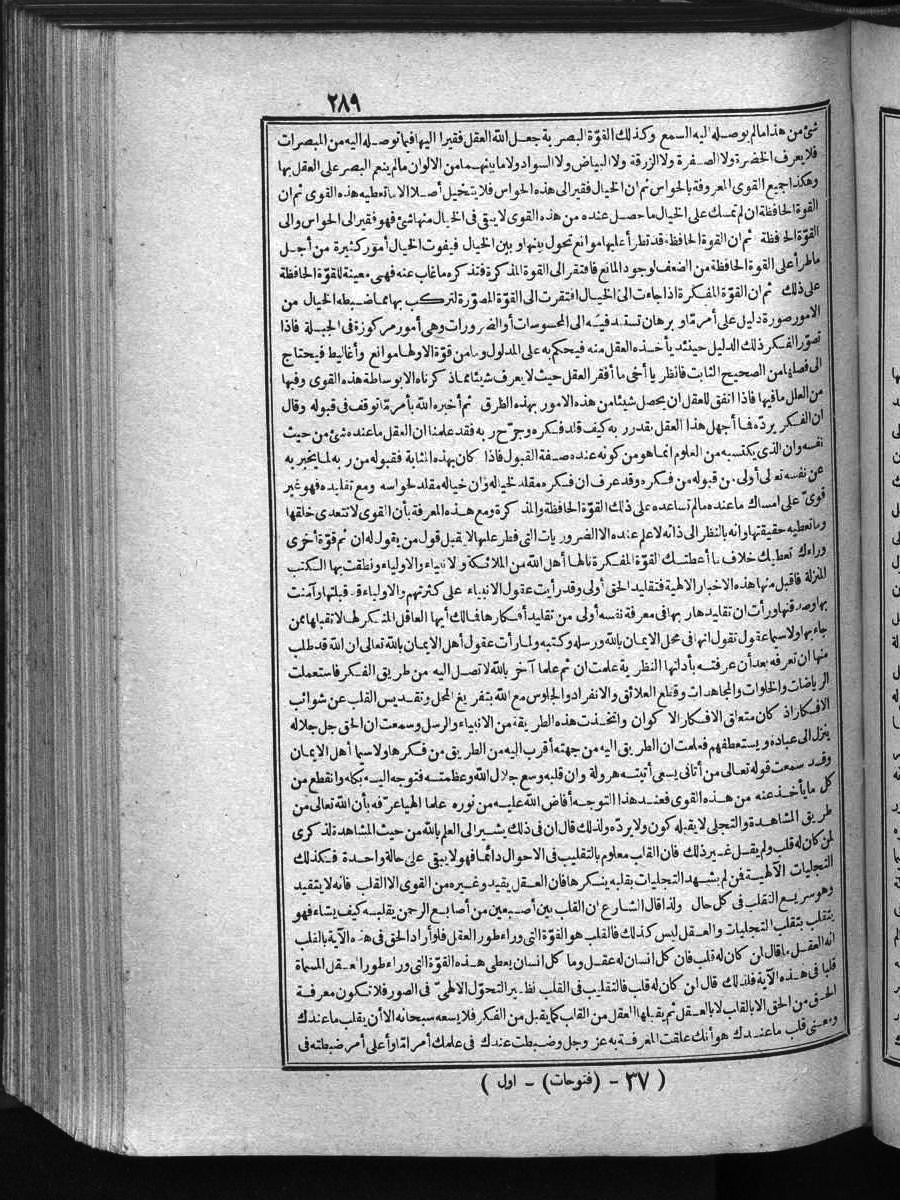 ٢٨٩
شئ من هذا مالم يوصله اليه السمع وكذلك القوة البصرية جعل الله العقل فقيرا اليها فيما توصله اليه من المبصرات
فلا يعرف الخضرة ولا الصفرة ولا الزرقة ولا البياض ولا السواد ولا ما بينهما من الالوان مالم ينعم البصر على العقل بها
وهكذا جميع القوى المعروفة بالحواس ثم ان الخيال فقير الى هذه الحواس فلا يتخيل أصلا الا ما تعطيه هذه القوى ثم ان
القوة الحافظة ان لم تمسك على الخيال ما حصل عنده من هذه القوى لا يبقى فى الخيال منها شئ فهو فقير الى الحواس والى
القوّة الحافظة ثم ان القوة الحافظة قد تطرأ عليها موانع تحول بينها وبين الخيال فيفوت الخيال أمور كثيرة من أجل
ما طرأ على القوة الحافظة من الضعف لوجود المانع فافتقر الى القوة المذكرة فتذكره ما غاب عنه فهى معينة للقوّة الحافظة
على ذلك ثم ان القوّة المفكرة اذا جاءت الى الخيال افتقرت الى القوّة المصوّرة لتركب بها مما ضبطه الخيال من
الامور صورة دليل على أمر مّا وبرهان تستند فيه الى المحسوسات أو الضرورات وهى أمور مركوزة فى الجبلة فاذا
تصوّر الفكر ذلك الدليل حينئذ يأخذه العقل منه فيحكم به على المدلول وما من قوّة الا ولها موانع وأغاليط فيحتاج
الى فصلها من الصحيح الثابت فانظر يا أخى ما أفقر العقل حيث لا يعرف شيئا مما ذكرناه الا بوساطة هذه القوى وفيها
من العلل ما فيها فاذا اتفق للعقل ان يحصل شيئا من هذه الامور بهذه الطرق ثم أخبره الله بأمر مّا توقف فى قبوله وقال
ان الفكر يردّه فما أجهل هذا العقل بقدر ربه كيف قلد فكره وجرّح ربه فقد علمنا ان العقل ما عنده شئ من حيث
نفسه وان الذى يكتسبه من العلوم انما هو من كونه عنده صفة القبول فاذا كان بهذه المثابة فقبوله من ربه لما يخبر به
عن نفسه تعالى أولى من قبوله من فكره وقد عرف ان فكره مقلد لخياله وان خياله مقلد لحواسه ومع تقليده فهو غير
قوىّ على امساك ما عنده مالم تساعده على ذلك القوّة الحافظة والمذكرة ومع هذه المعرفة بأن القوى لا تتعدى خلقها
وما تعطيه حقيقتها وانه بالنظر الى ذاته لا علم عنده الا الضروريات التى فطر عليها لا يقبل قول من يقول له ان ثم قوّة أخرى
وراءك تعطيك خلاف ما أعطتك القوّة المفكرة نالها أهل الله من الملائكة والانبياء والاولياء ونطقت بها الكتب
المنزلة فاقبل منها هذه الاخبار الالهية فتقليد الحق أولى وقد رأيت عقول الانبياء على كثرتهم والاولياء قد قبلتها وآمنت
بها وصدقتها ورأت ان تقليدها ربها فى معرفة نفسه أولى من تقليد أفكارها فمالك أيها العاقل المنكر لها لا تقبلها ممن
جاء بها ولاسيما عقول تقول انها فى محل الايمان بالله ورسله وكتبه ولما رأت عقول أهل الايمان بالله تعالى ان الله قد طلب
منها ان تعرفه بعد أن عرفته بأدلتها النظرية علمت ان ثم علما آخر بالله لا تصل اليه من طريق الفكر فاستعملت
الرياضات والخلوات والمجاهدات وقطع العلائق والانفراد والجلوس مع الله بتفريغ المحل وتقديس القلب عن شوائب
الافكار اذ كان متعلق الافكار الاكوان واتخذت هذه الطريقة من الانبياء والرسل وسمعت ان الحق جل جلاله
ينزل الى عباده ويستعطفهم فعلمت ان الطريق اليه من جهته أقرب اليه من الطريق من فكرها ولاسيما أهل الايمان
وقد سمعت قوله تعالى من أتانى يسعى أتيته هرولة وان قلبه وسع جلال الله وعظمته فتوجه اليه بكله وانقطع من
كل ما يأخذ عنه من هذه القوى فعند هذا التوجه أفاض الله عليه من نوره علما الهيا عرّفه بأن الله تعالى من
طريق المشاهدة والتجلى لا يقبله كون ولا يردّه ولذلك قال ان فى ذلك يشير الى العلم بالله من حيث المشاهدة لذكرى
لمن كان له قلب ولم يقل غير ذلك فان القلب معلوم بالتقليب فى الاحوال دائما فهو لا يبقى على حالة واحدة فكذلك
التجليات الالهية فمن لم يشهد التجليات بقلبه ينكرها فان العقل يقيد وغيره من القوى الا القلب فانه لا يتقيد
وهو سريع التقلب فى كل حال ولذا قال الشارع ان القلب بين أصبعين من أصابع الرحمن يقلبه كيف يشاء فهو
يتقلب بتقلب التجليات والعقل ليس كذلك فالقلب هو القوّة التى وراء طور العقل فلو أراد الحق فى هذه الآية بالقلب
انه العقل ما قال لمن كان له قلب فان كل انسان له عقل وما كل انسان يعطى هذه القوّة التى وراء طور العقل المسماة
قلبا فى هذه الآية فلذلك قال لمن كان له قلب فالتقليب فى القلب نظير التحوّل الالهىّ فى الصور فلا تكون معرفة
الحق من الحق الا بالقلب لا بالعقل ثم يقبلها العقل من القلب كما يقبل من الفكر فلا يسعه سبحانه الا أن يقلب ما عندك
ومعنى قلب ما عندك هو أنك علقت المعرفة به عز وجل وضبطت عندك فى علمك أمرا مّا وأعلى أمر ضبطته فى
( ٣٧ - (فتوحات) - اول )